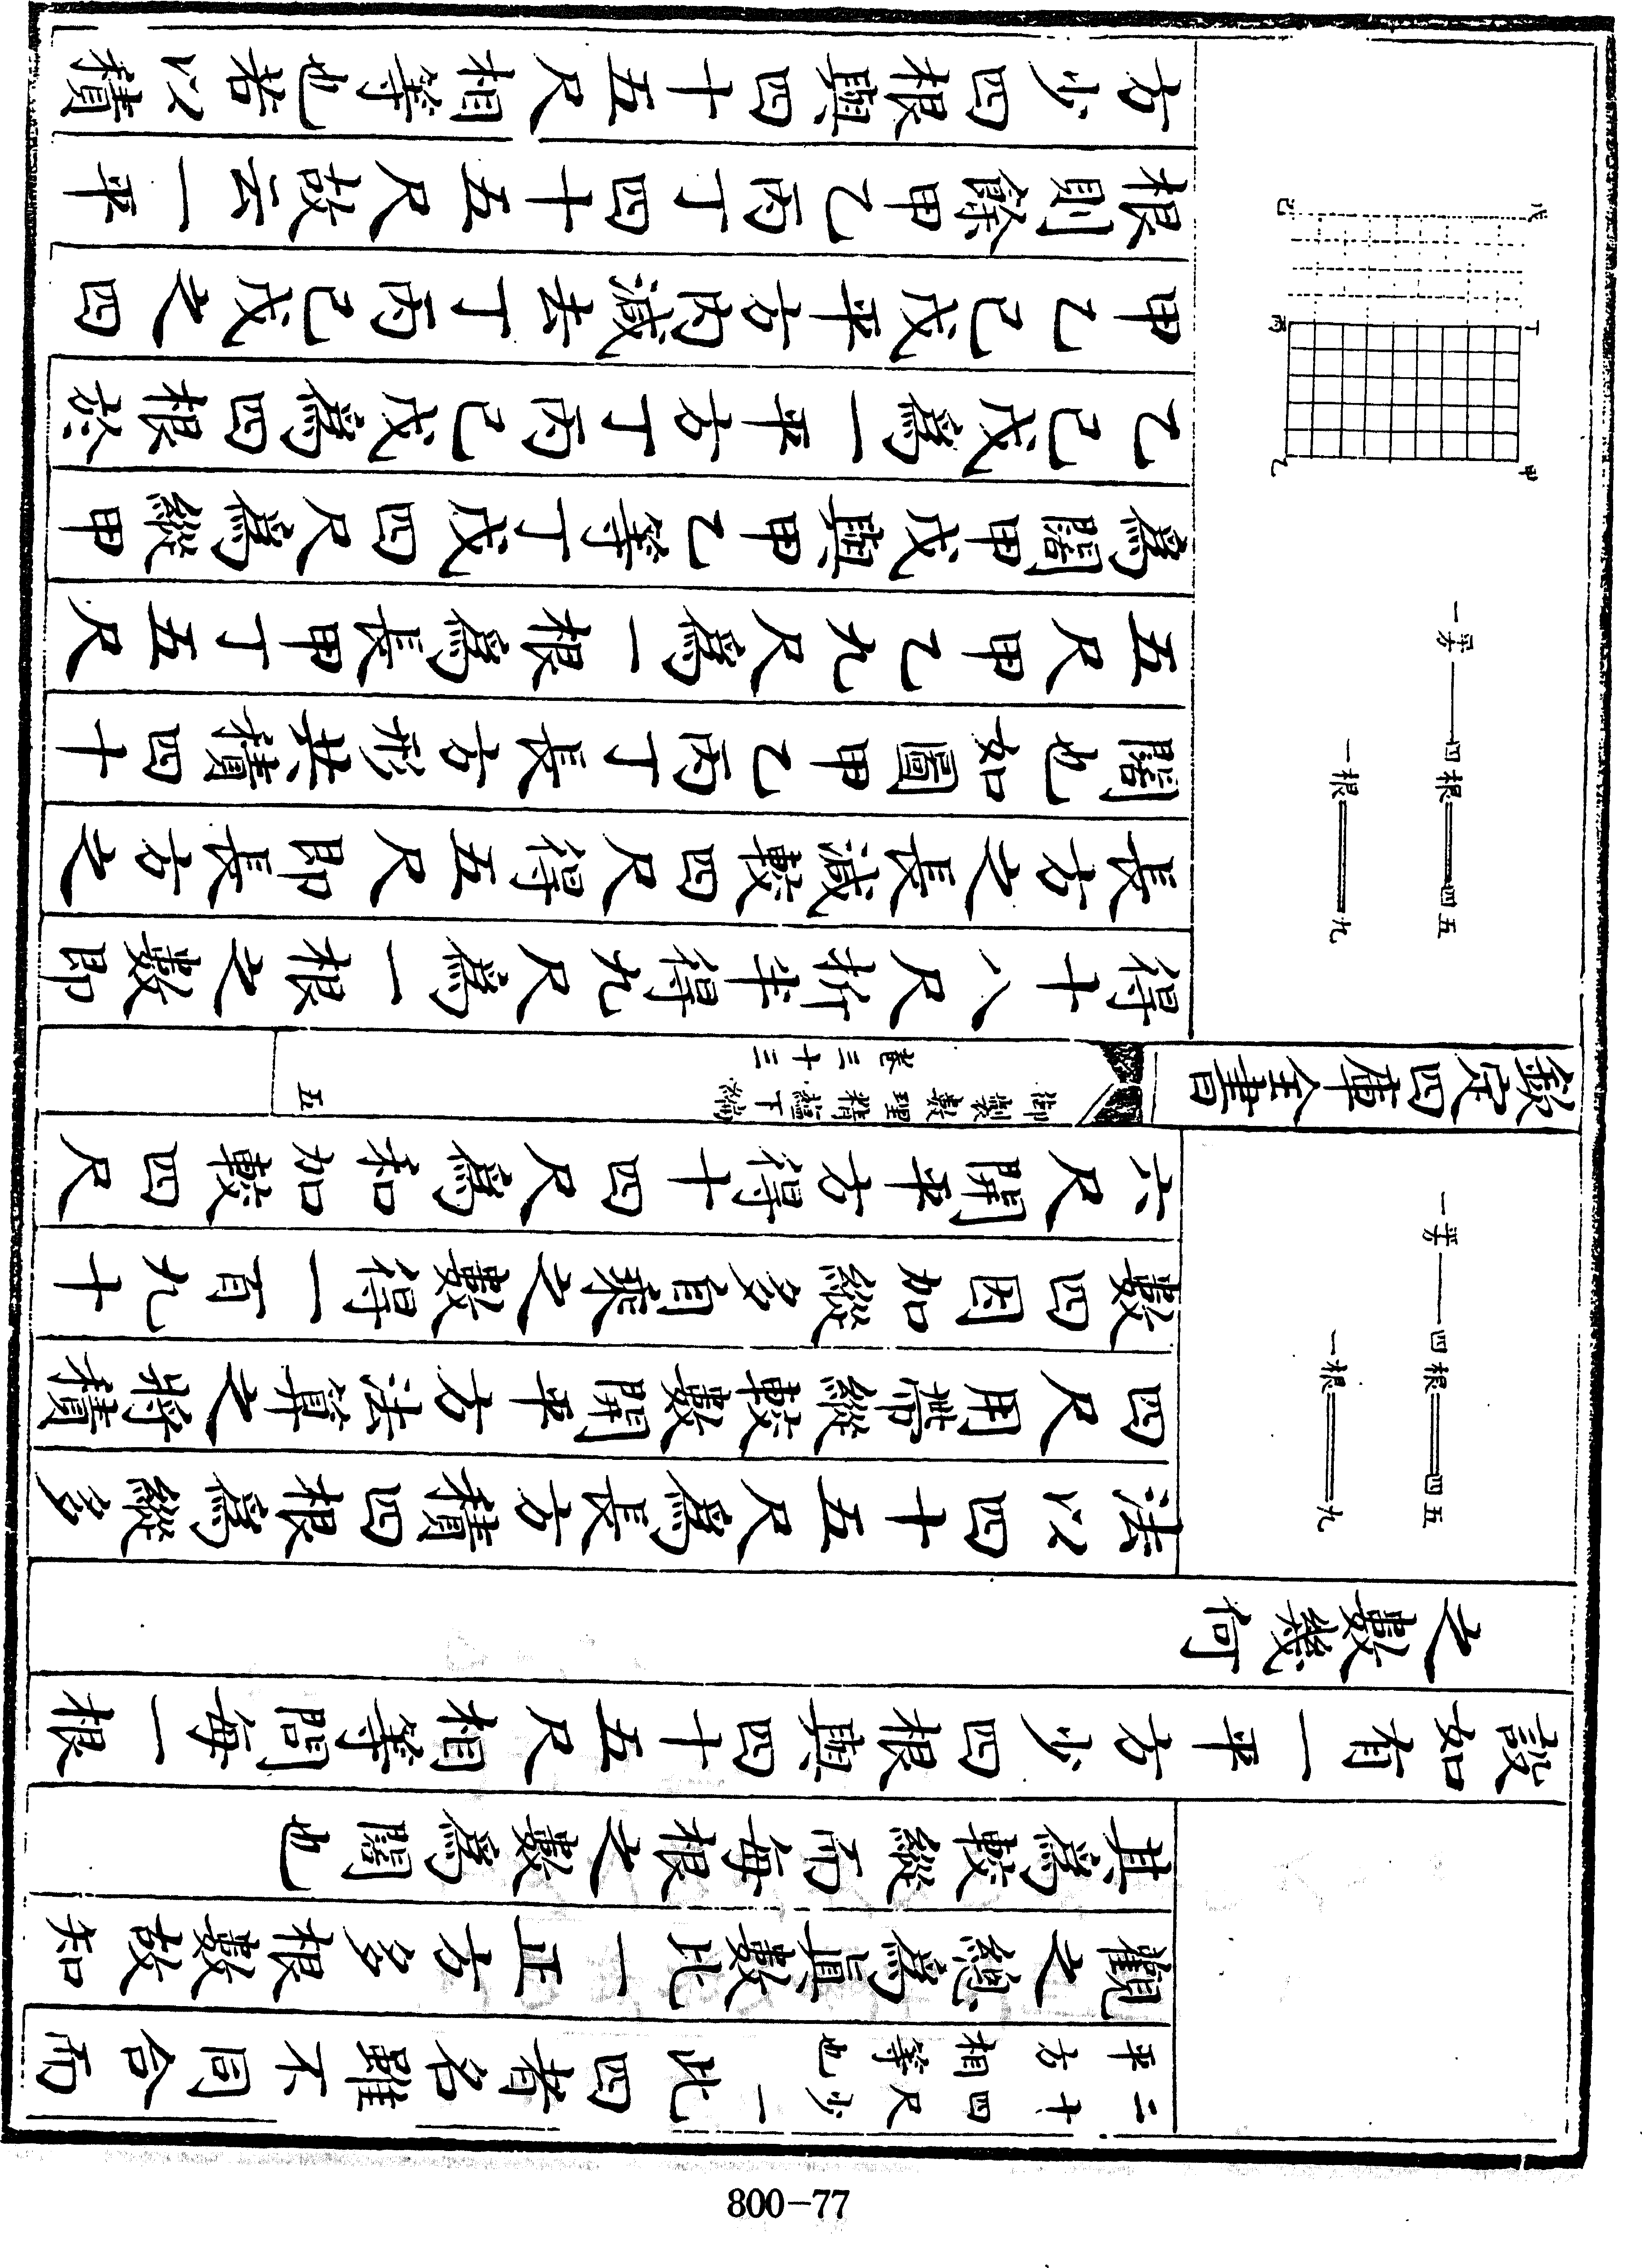 二十四尺少一
平方相等也
此四者名雖不同合而
觀之總爲真數比一正方多根數故知
其爲較縱而每根之數爲闊也
設如有一平方少四根與四十五尺相等問每一根
之數幾何
一平方 四根 四五
一根 九
法以四十五尺爲長方積四根爲縱多
四尺用帶縱較數開平方法算之將積
數四因加縱多自乘之數得一百九十
六尺開平方得十四尺爲和加較四尺
欽定四庫全書
御製數理精蘊下編
卷三十三
五
一平方 四根 四五
一根 九
甲 乙
丁 丙
戊 己
得十八尺折半得九尺爲一根之數即
長方之長減較四尺得五尺即長方之
闊也如圖甲乙丙丁長方形其積四十
五尺甲乙九尺爲一根爲長甲丁五尺
爲闊甲戊與甲乙等丁戊四尺爲縱甲
乙己戊爲一平方丁丙己戊爲四根於
甲乙己戊平方內減去丁丙己戊之四
根則餘甲乙丙丁四十五尺故云一平
方少四根與四十五尺相等也若以積
800-77